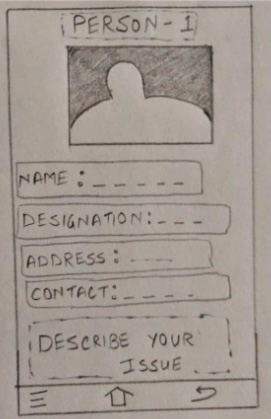 PERSON - 1
NAME : _ _ _ _ _
DESIGNATION: _ _ _
ADDRESS : _ _ _
CONTACT: _ _ _ _
DESCRIBE YOUR
ISSUE